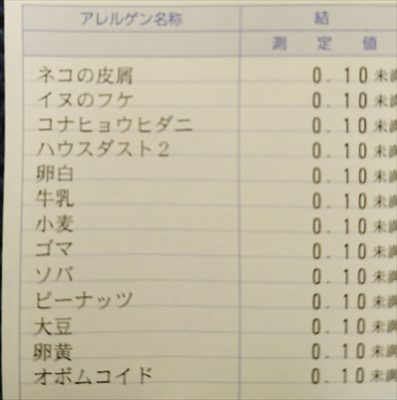 アレルゲン名称 結
測定値
ネコの皮屑 0.10未満
イヌのフケ 0.10未満
コナヒョウヒダニ 0.10未満
ハウスダスト2 0.10未満
卵白 0.10未満
牛乳 0.10未満
小麦 0.10未満
ゴマ 0.10未満
ソバ 0.10未満
ピーナッツ 0.10未満
大豆 0.10未満
卵黄 0.10未満
オボムコイド 0.10未満